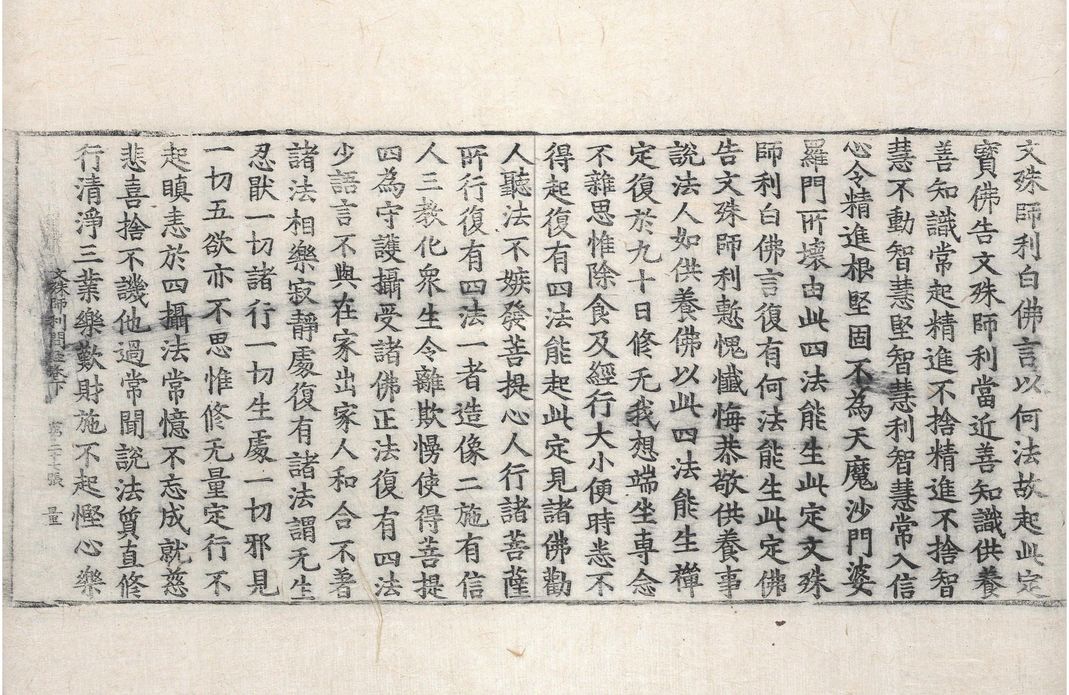 文殊師利白佛言以何法故起此定
寳佛告文殊師利當近善知識供養
善知識常起精進不捨精進不捨智
慧不動智慧堅智慧利智慧常入信
心令精進根堅固不為天魔沙門婆
羅門所壞由此四法能生此定文殊
師利白佛言復有何法能生此定佛
告文殊師利慙愧懺悔恭敬供養事
說法人如供養佛以此四法能生禪
定復於九十日修无我想端坐専念
不雜思惟除食及經行大小便時悉不
得起復有四法能起此定見諸佛勸
人聽法不嫉發菩提心人行諸菩薩
所行復有四法一者造像二施有信
人三教化衆生令離欺慢使得菩提
四為守護攝受諸佛正法復有四法
少語言不與在家出家人和合不著
諸法相樂寂靜處復有諸法謂无生
忍猒一切諸行一切生處一切邪見
一切五欲亦不思惟修无量定行不
起瞋恚於四攝法常憶不忘成就慈
悲喜捨不譏他過常聞說法質直修
行清淨三業樂歎財施不起慳心樂
文殊師利問經卷下 第二十七張 量